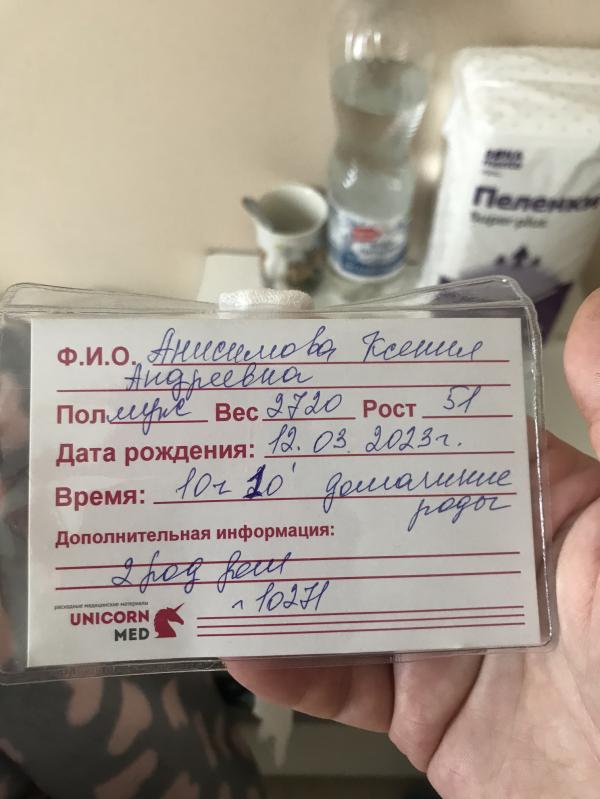 Пеленки
Superplus
Ф.И.О. Анисимова Ксения
Андреевна
Пол муж Вес 2720 Рост 51
Дата рождения: 12.03.2023г.
Время: 10ч 20' домашние
роды
Дополнительная информация:
2 род дом
расходные медицинские материалы
UNICORN
MED